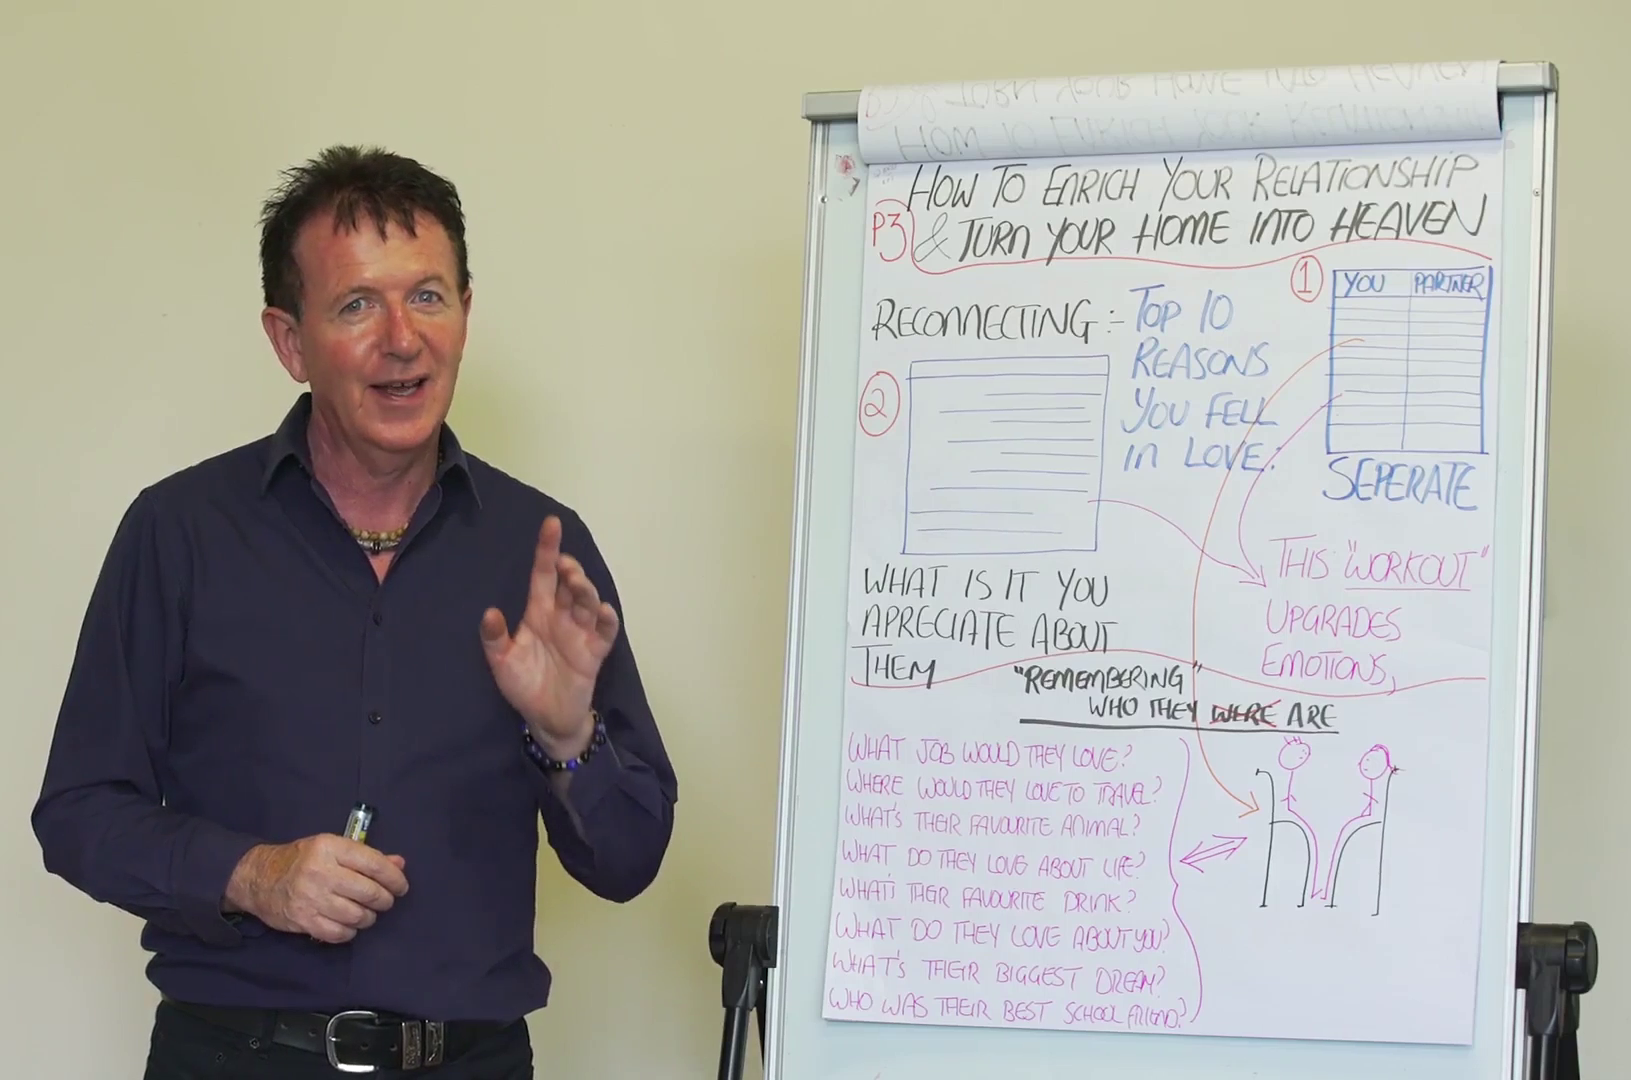 HOW TO ENRICH YOUR RELATIONSHIP
P3 & TURN YOUR HOME INTO HEAVEN
RECONNECTING:-
TOP 10
REASONS
YOU FELL
IN LOVE:
1
YOU PARTNER
SEPERATE
2
WHAT IS IT YOU
APRECIATE ABOUT
THEM
THIS "WORKOUT"
UPGRADES
EMOTIONS,
"REMEMBERING"
WHO THEY WERE ARE
WHAT JOB WOULD THEY LOVE?
WHERE WOULD THEY LOVE TO TRAVEL?
WHAT'S THEIR FAVOURITE ANIMAL?
WHAT DO THEY LOVE ABOUT LIFE?
WHAT'S THEIR FAVOURITE DRINK?
WHAT DO THEY LOVE ABOUT YOU?
WHAT'S THEIR BIGGEST DREAM?
WHO WAS THEIR BEST SCHOOL FRIEND?